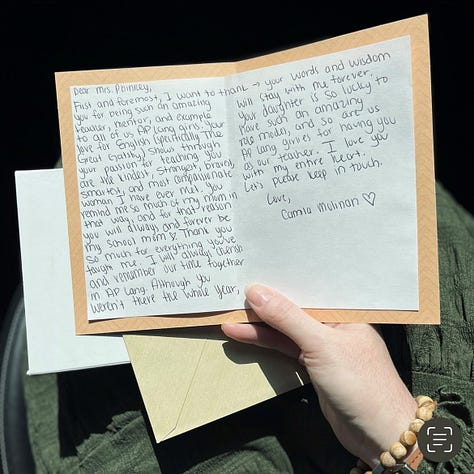 Dear Mrs. Phinney,
First and foremost, I want to thank
you for being such an amazing
teacher, mentor, and example
to all of us AP Lang girls. Your
love for English (specifically The
Great Gatsby) shows through
your passion for teaching. You
are the kindest, strongest, bravest,
smartest, and most compassionate
woman I have ever met. You
remind me so much of my mom in
that way, and for that reason
you will always and forever be
my school mom ♡ Thank you
so much for everything you've
taught me. I will always cherish
and remember our time together
in AP Lang. Although you
weren't there the whole year,
→ your words and wisdom
will stay with me forever.
Your daughter is so lucky to
have such an amazing
role model, and so are us
AP Lang girlies for having you
as our teacher. I love you
with my entire heart.
Let's please keep in touch.
Love,
Camila
♡